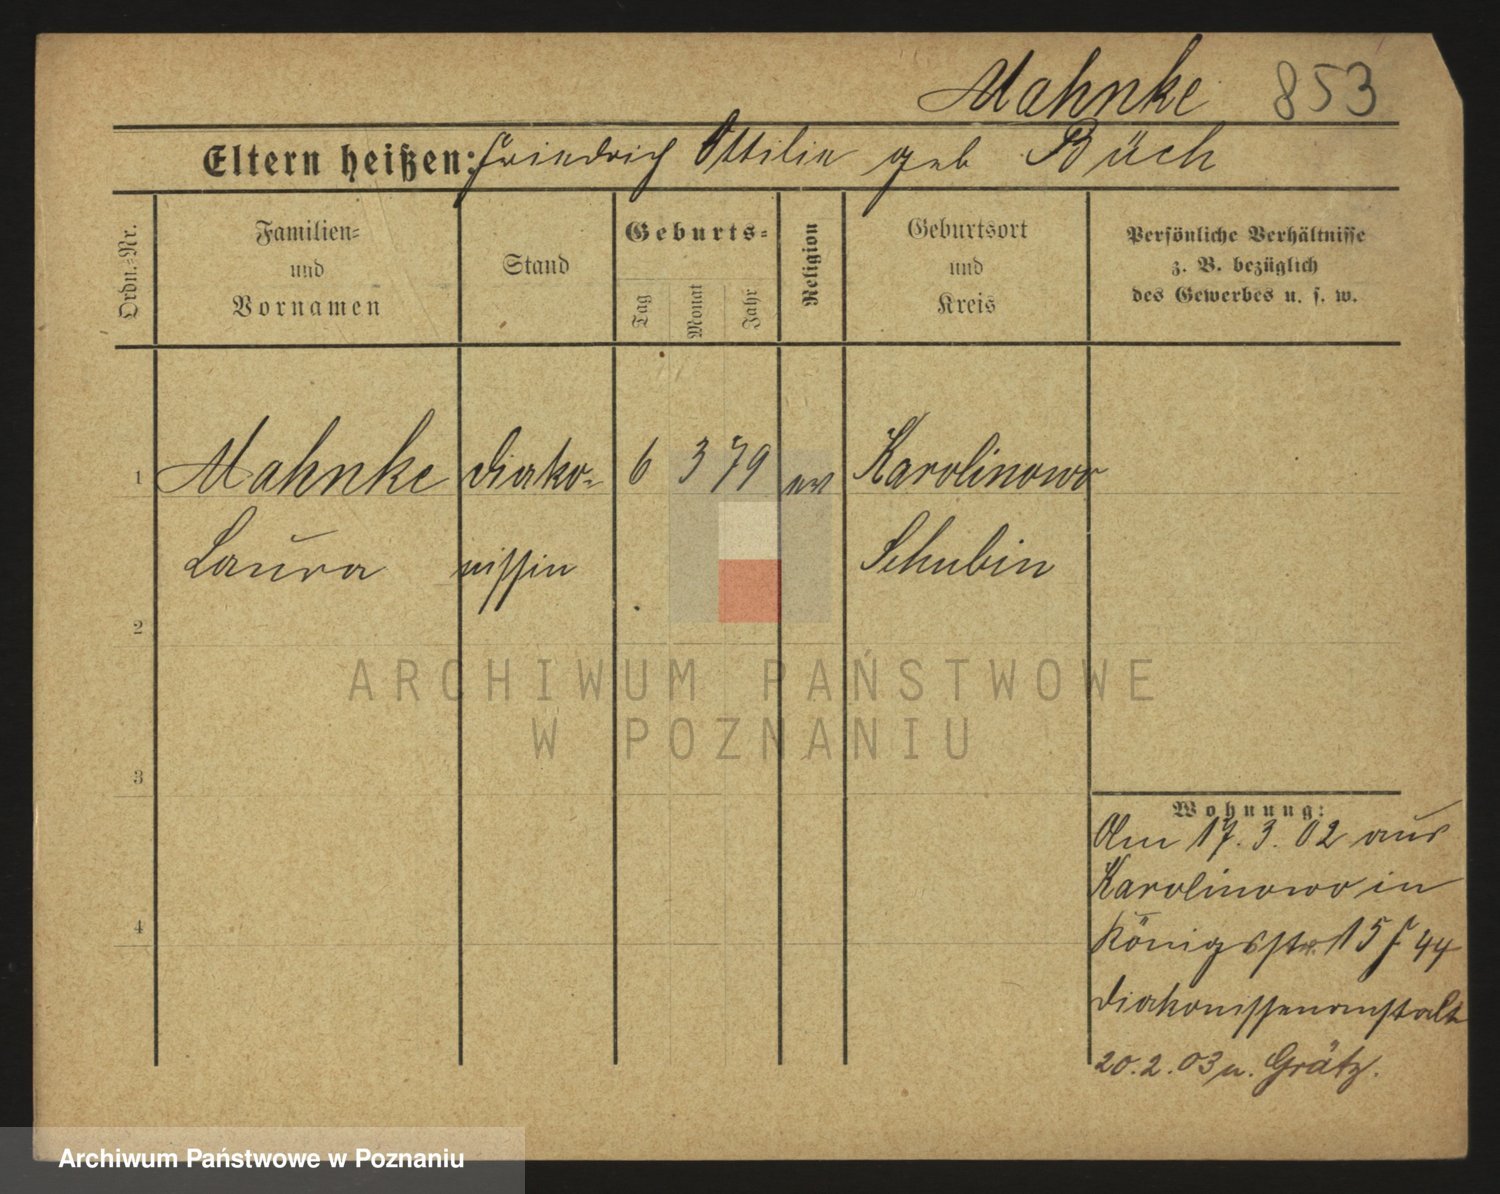 Mahnke 853
Eltern heißen: Friedrich Ottilie geb Büch
Ordn.=Nr.
Familien=
und
Vornamen
Stand
Geburts=
Tag
Monat
Jahr
Religion
Geburtsort
und
Kreis
Persönliche Verhältnisse
z. B. bezüglich
des Gewerbes u. s. w.
1 Mahnke Diako= 6 3 79 ev Karolinowo
Laura nissin Schubin
2
3
4
Wohnung:
Am 17.3.02 aus
Karolinowo in
Königsstr. 15 44
Diakonissenanstalt
20.2.03 n. Grätz.
ARCHIWUM PAŃSTWOWE
W POZNANIU
Archiwum Państwowe w Poznaniu